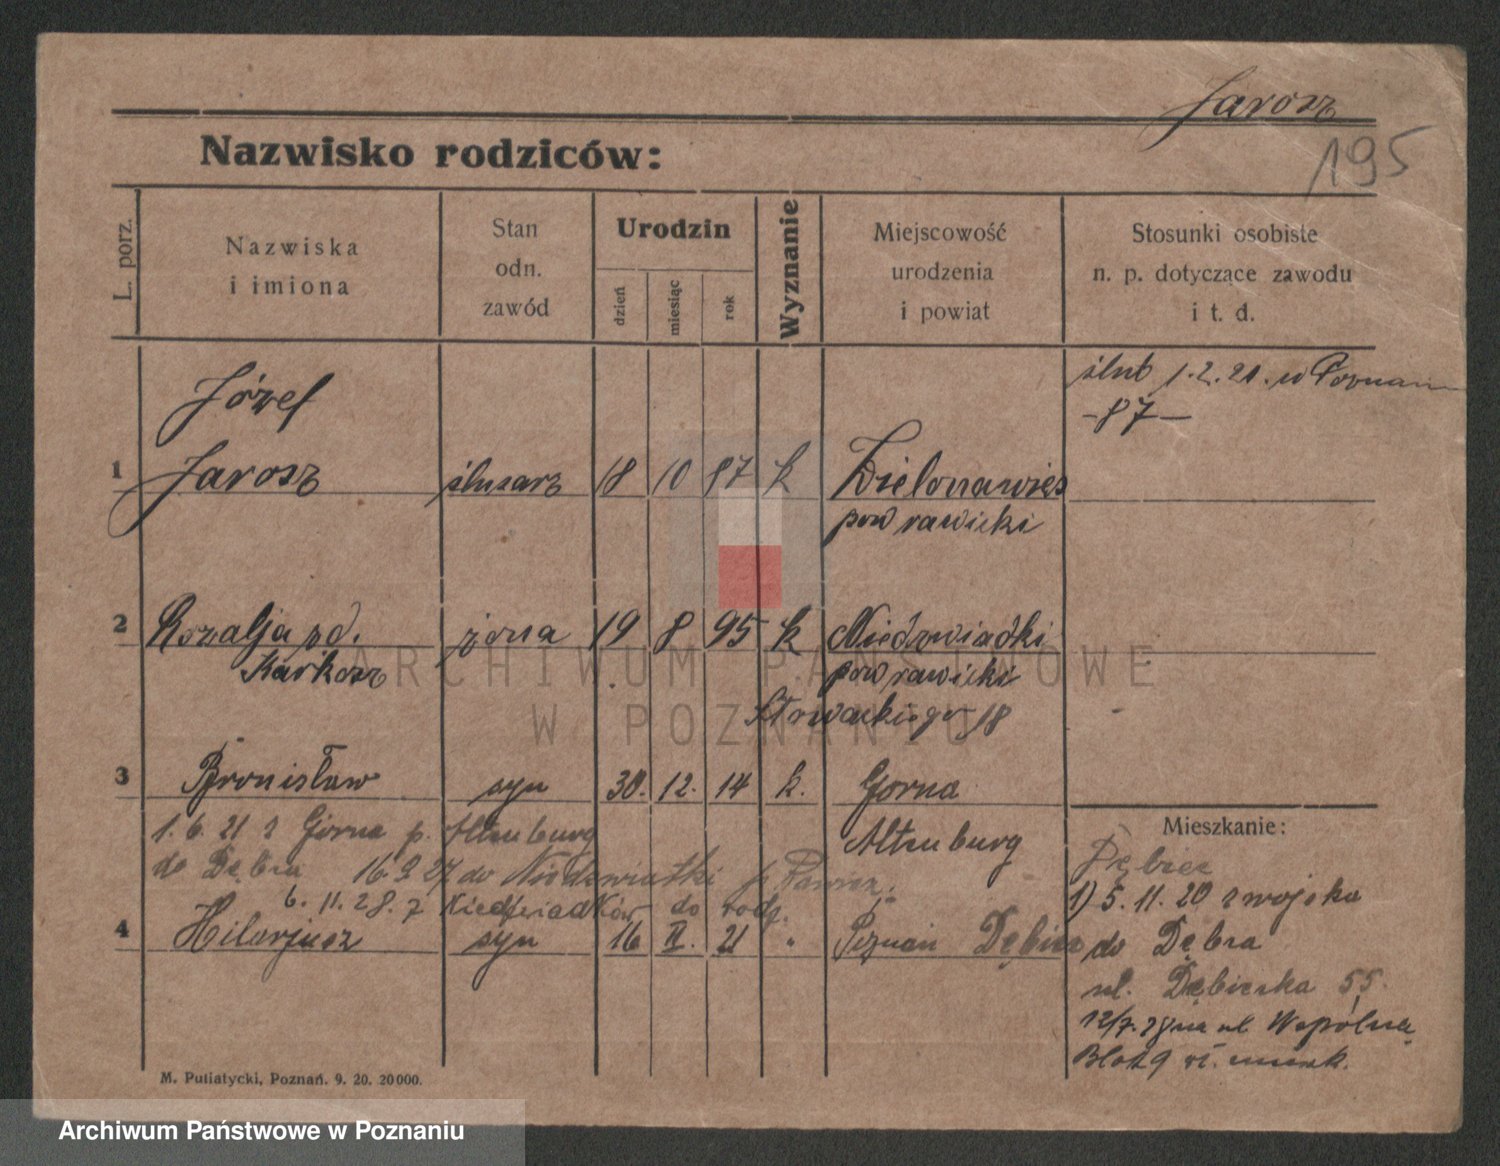 Jarosz
195
Nazwisko rodziców:
L. porz.
Nazwiska
i imiona
Stan
odn.
zawód
Urodzin
dzień
miesiąc
rok
Wyznanie
Miejscowość
urodzenia
i powiat
Stosunki osobiste
n. p. dotyczące zawodu
i t. d.
ślub 1.2.21. w Poznań
-87-
Józef
1 Jarosz ślusarz 18 10 87 k Zielonawieś
pow rawicki
2 Rozalja zd. żona 19 8 95 k Niedzwiadki
Karkosz pow rawicki
18
3 Bronisław syn 30. 12. 14 k. Gorna
Altenburg
1. 6. 21 z Górna p. Altenburg
do Dębca 16.9.27 do p Rawicz.
6. 11. 28. z Niedźwiadków do rodz.
4 Hilarjusz syn 16 21 " Poznań Dębiec
Mieszkanie:
Dębiec
1) 5. 11. 20 z wojska
do Dębca
ul. Dębiecka 55.
12/7. ul. Wspólna
Blok 9
M. Putiatycki, Poznań. 9. 20. 20000.
ARCHIWUM PAŃSTWOWE
W POZNANIU
Archiwum Państwowe w Poznaniu